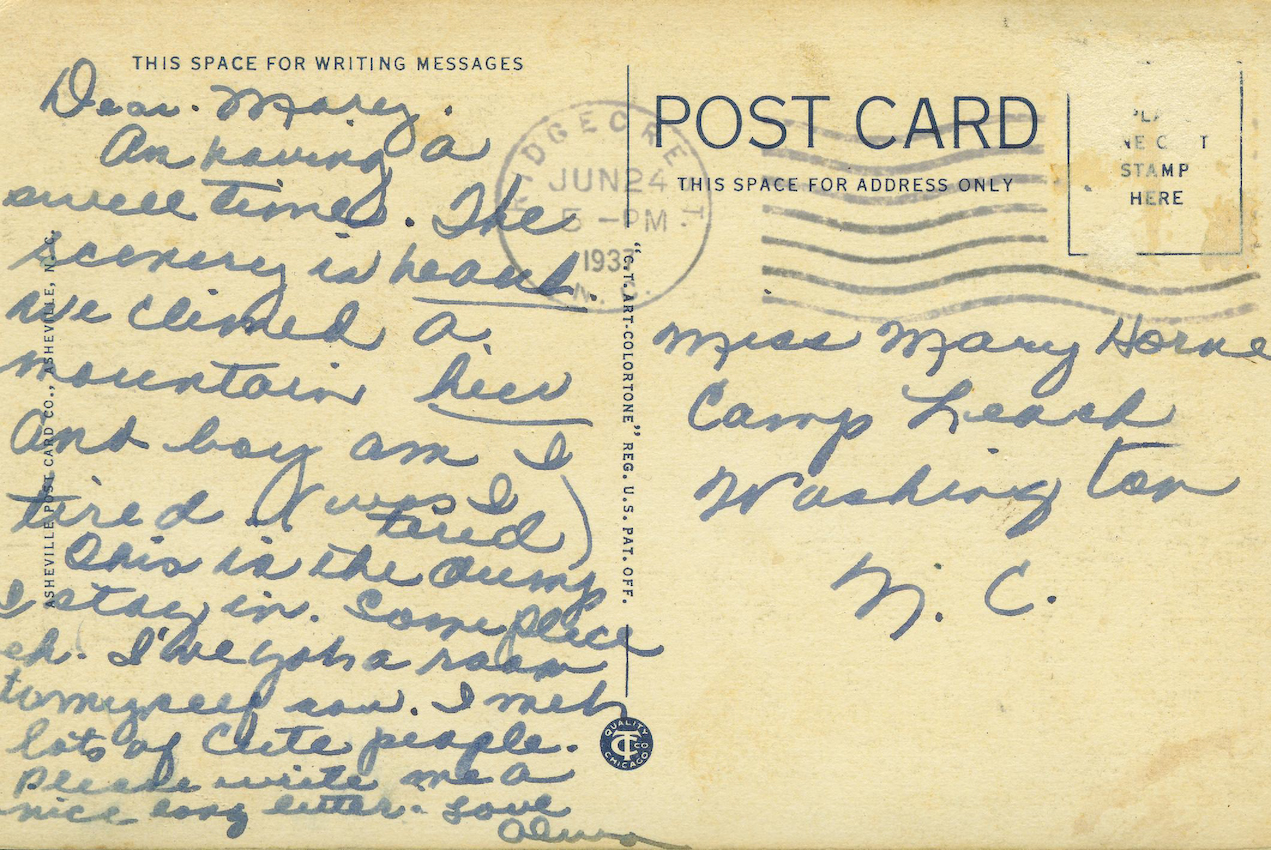 THIS SPACE FOR WRITING MESSAGES
Dear Mary.
Am having a
swell time. The
scenery is beaut.
We climed a
mountain
And boy am I
tired (was I
tired)
This is the dump
I stay in. Some place
eh. I've got a room
to myself now. I met
lots of cute people.
Please write me a
nice long letter. Love
ASHEVILLE POST CARD CO., ASHEVILLE, N. C.
"C. T. ART-COLORTONE" REG. U. S. PAT. OFF.
QUALITY
CT CO
CHICAGO
JUN 24
5 - PM
1937
N. C.
POST CARD
THIS SPACE FOR ADDRESS ONLY
STAMP
HERE
Miss Mary Horne
Camp Leach
Washington
N. C.